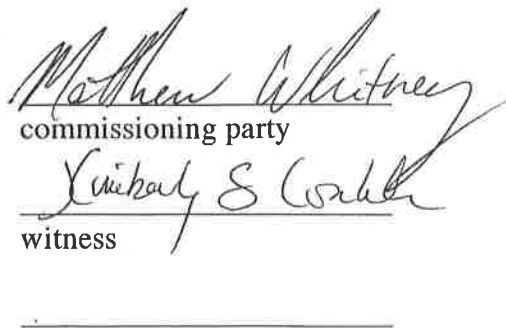 Matthew Whitney
commissioning party
Kimberly S
witness